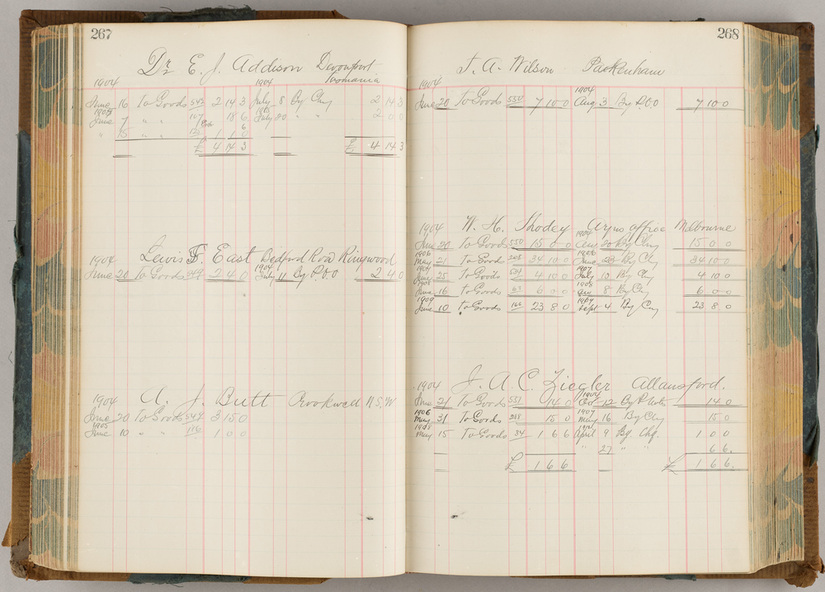 267
Dr E. J. Addison Devonport
Tasmania
1904
June 16 To Goods 545 2 14 3 July 8 By Chq 2 14 3
1905 1905
June 7 " " 107 18 6 July 20 " " 2 0 0
" 15 " " 1 1 6
£ 4 14 3 £ 4 14 3
1904 Lewis F. East Bedford Row Ringwood
June 20 To Goods 549 2 4 0 July 11 By P.O.O 2 4 0
1904 A. J. Butt Crookwell N.S.W.
June 20 To Goods 547 3 15 0
1905
June 10 " " 1 0 0
268
J. A. Wilson Packenham
1904 1904
June 20 To Goods 550 7 10 0 Aug 3 By P.O.O 7 10 0
1904 W. H. Shodey Argus Office Melbourne
June 20 To Goods 550 15 0 0 Aug 20 By Chq 15 0 0
May 21 To Goods 34 10 0 June 20 By Chq 34 10 0
25 To Goods 4 10 0 July 10 By Chq 4 10 0
1908 1908
June 16 To Goods 6 0 0 8 By Chq 6 0 0
1909 1909
June 10 To Goods 23 8 0 Sept 4 By Chq 23 8 0
1904 J. A. C. Ziegler Allansford.
June 21 To Goods 551 14 0 Oct 12 By P. Note 14 0
1906 1907
May 31 To Goods 15 0 May 16 By Chq 15 0
May 15 To Goods 34 1 6 6 April 9 By Chq. 1 0 0
" 27 " " 6 6
£ 1 6 6 £ 1 6 6